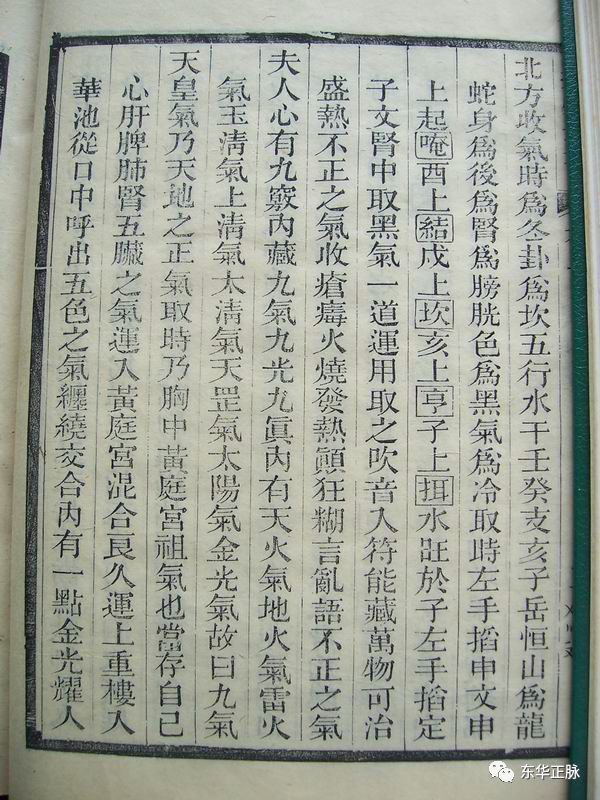 北方收氣時爲冬卦爲坎五行水干壬癸支亥子岳恒山爲龍
蛇身爲後爲腎爲膀胱色爲黑氣爲冷取時左手搯申文申
上起唵酉上結戌上坎亥上享子上挕水旺於子左手搯定
子文腎中取黑氣一道運用取之吹音入符能藏萬物可治
盛熱不正之氣收瘡毒火燒發熱顚狂糊言亂語不正之氣
夫人心有九竅內藏九氣九光九眞內有天火氣地火氣雷火
氣玉淸氣上淸氣太淸氣天罡氣太陽氣金光氣故曰九氣
天皇氣乃天地之正氣取時乃胸中黃庭宮祖氣也當存自己
心肝脾肺腎五臟之氣運入黃庭宮混合良久運上重樓入
華池從口中呼出五色之氣纏繞交合內有一點金光耀人
东华正脉